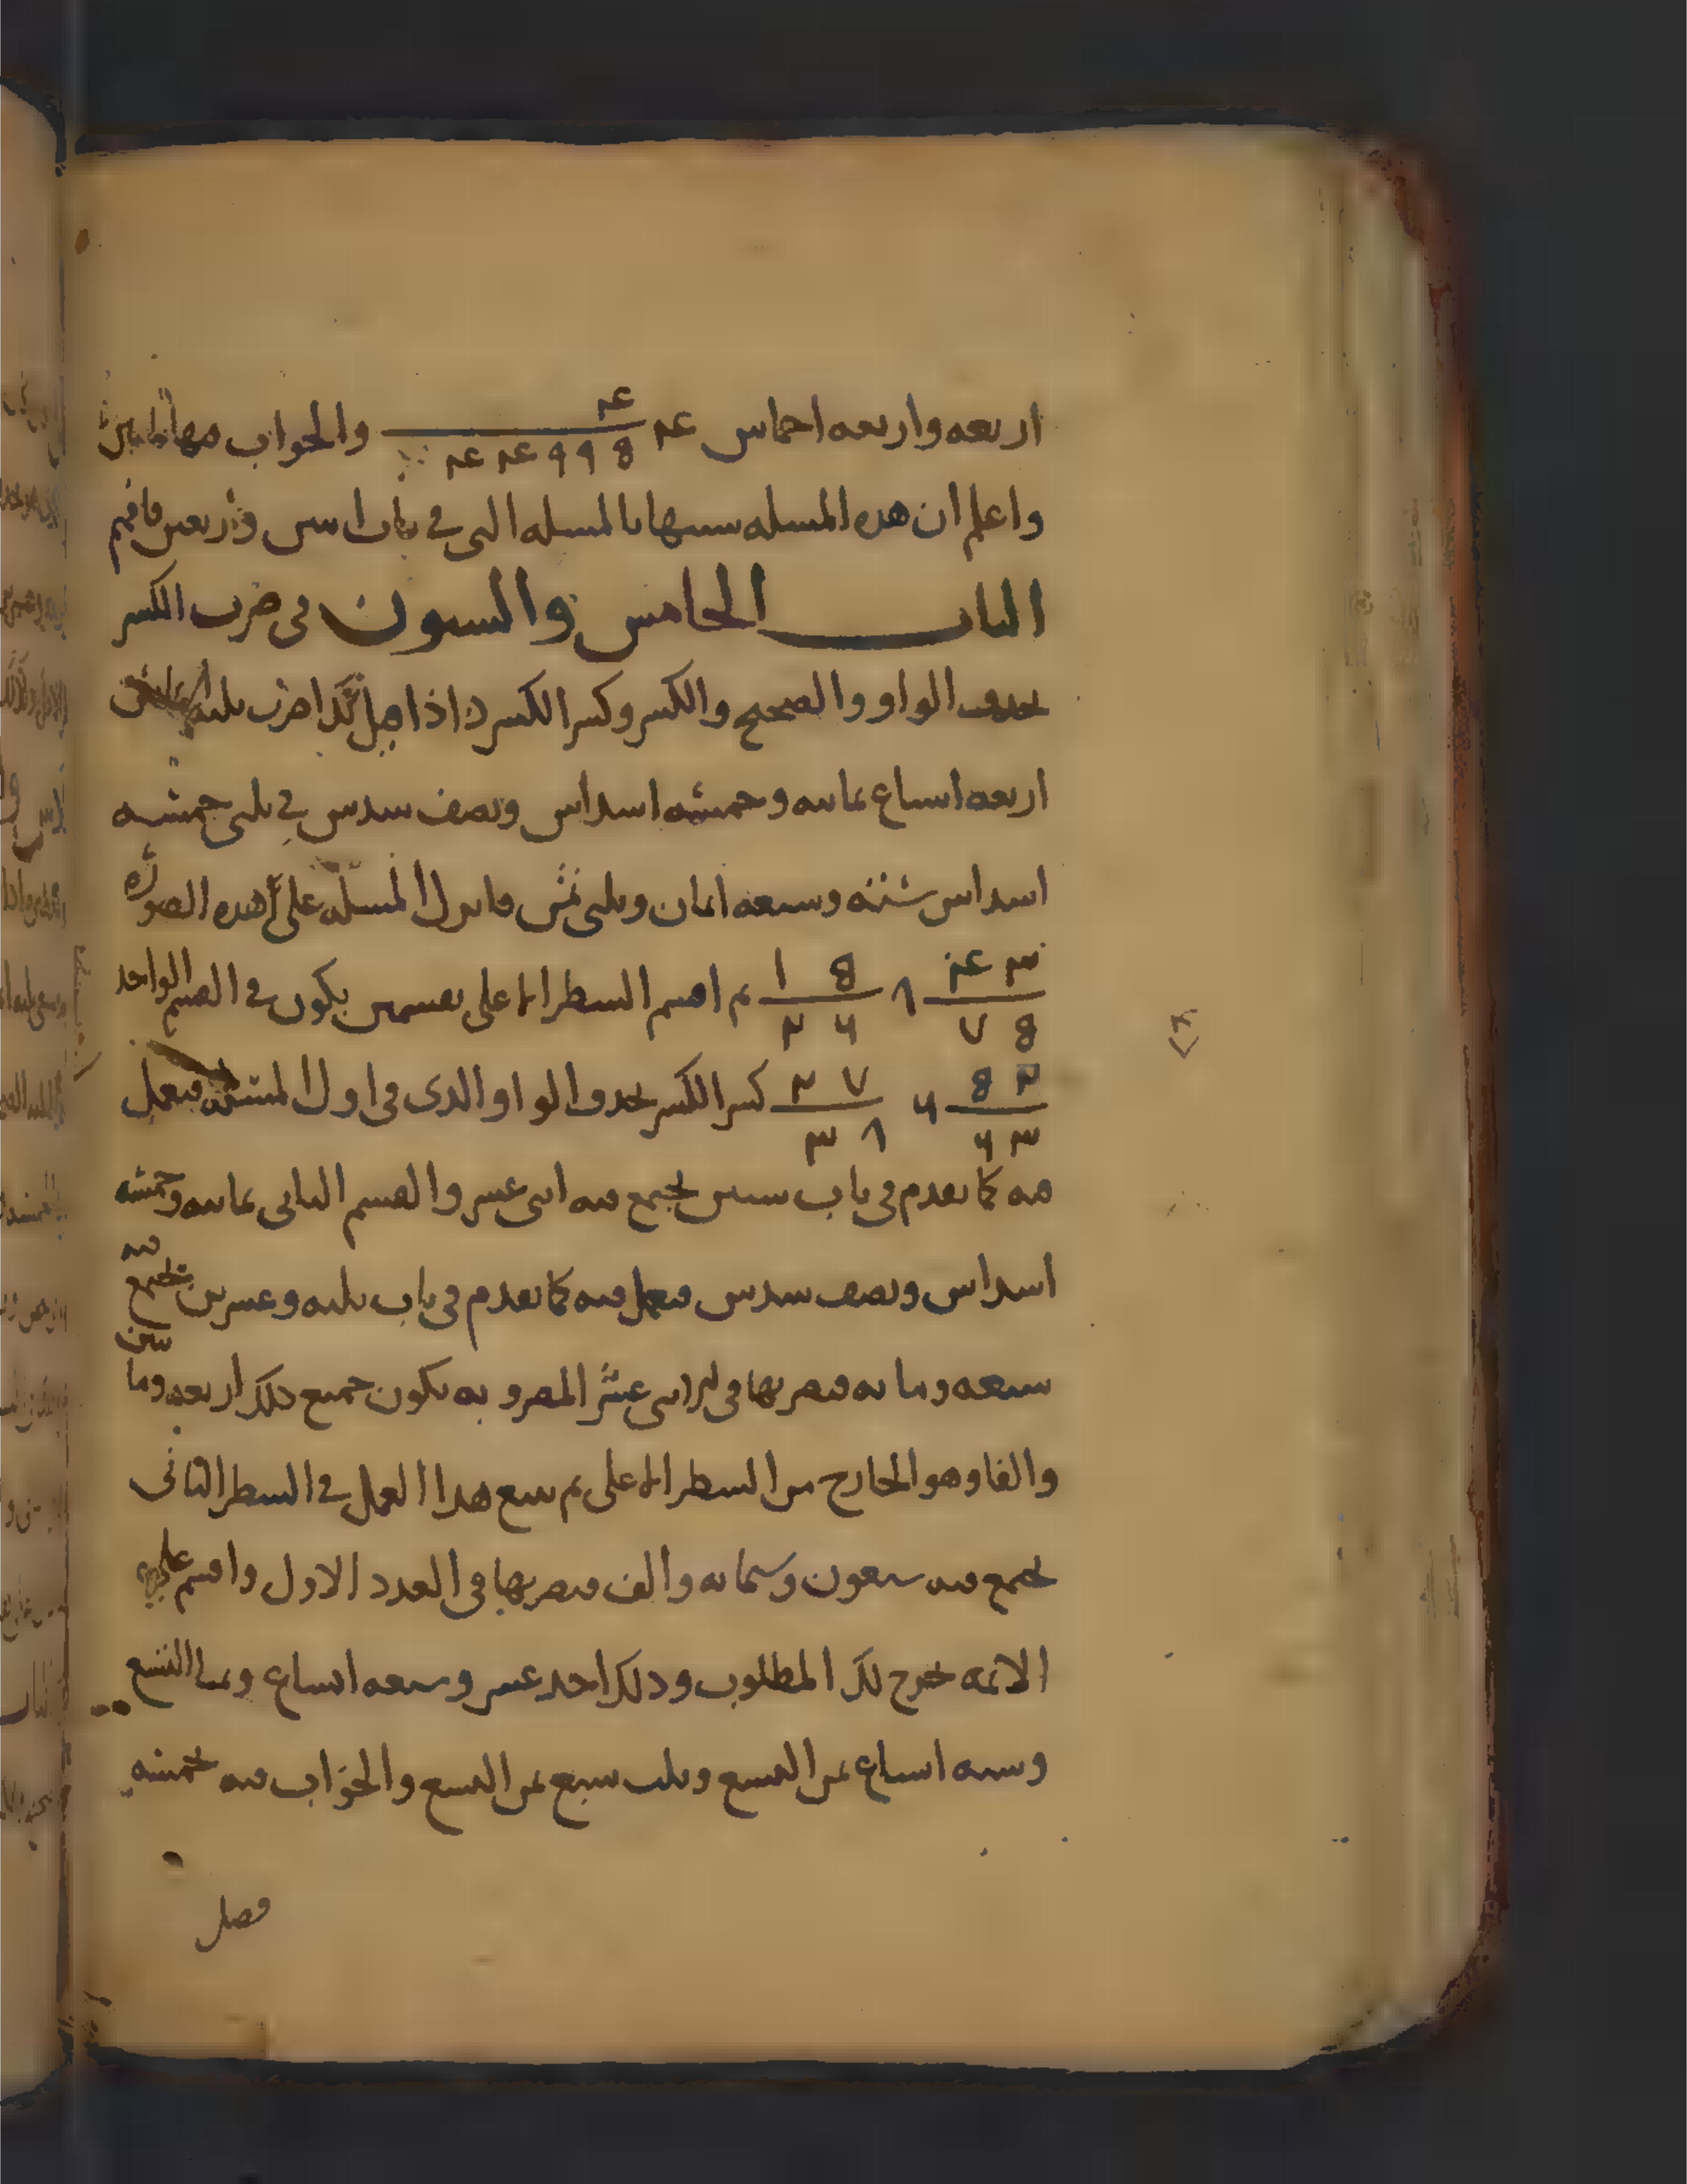 اربعه واربعه احماس ۴ ۴ ــــــ 8 ۹ ۹ ۴ ۴ والجواب مها
واعلم ان هده المسله سسهها بالمسله التى فى باب اسں واربعين فافهم
الباب الخامس والستون فى ضرب الكسر
بحدف الواو والصحيح والكسر وكسر الكسر اذا قيل لك اضرب ثلثه اخماس
اربعه اسباع ثمانيه وخمسه اسداس ونصف سدس فى ثلثى خمسه
اسداس سته وسبعه اثمان وثلثى ثمن فانزل المسله على هده الصوره
۳ ۴ / 8 ۷ ۸ 8 ۱ / ۶ ۲ ثم اقسم السطر الاعلى بقسمين يكون فى القسم الواحد
۲ 8 / ۳ ۶ ۶ ۷ ۲ / ۸ ۳ كسر الكسر بحدف الواو الدى فى اول المسله فتعمل
فيه كما تقدم فى باب ستين يجتمع منه اثنى عشر والقسم الثانى ثمانيه وخمسه
اسداس ونصف سدس فتعمل فيه كما تقدم فى باب ثلثه وعشرين يجتمع منه
سبعه ومايه فتضربها فى اثنى عشر المضروبه يكون جميع دلك اربعه ومايتين
والفا وهو الخارج من السطر الاعلى ثم تصنع هدا العمل فى السطر الثانى
يجتمع منه سبعون وستمايه والف فتضربها فى العدد الاول واقسم على
الايمه يخرج لك المطلوب ودلك احد عشر وسبعه اتساع وثمنا التسع
وسته اسباع ثمن التسع وثلث سبع ثمن التسع والجواب منه خمسه
فصل